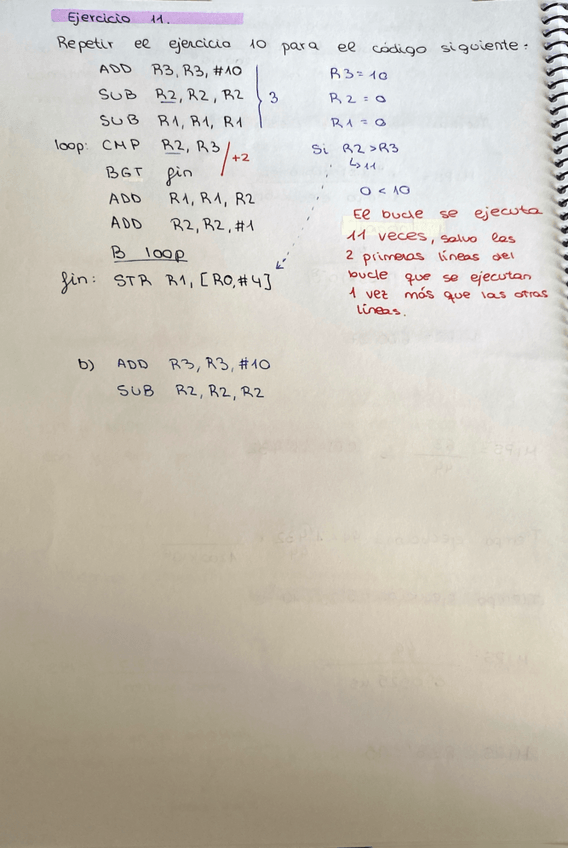 Ejercicio 11.
Repetir el ejercicio 10 para el código siguiente:
ADD R3, R3, #10
SUB R2, R2, R2
SUB R1, R1, R1
3
R3 = 10
R2 = 0
R1 = 0
loop: CMP R2, R3
BGT fin
+2
Si R2 > R3
↳ 11
0 < 10
ADD R1, R1, R2
ADD R2, R2, #1
B loop
fin: STR R1, [R0, #4]
El bucle se ejecuta
11 veces, salvo las
2 primeras líneas del
bucle que se ejecutan
1 vez más que las otras
líneas.
b) ADD R3, R3, #10
SUB R2, R2, R2